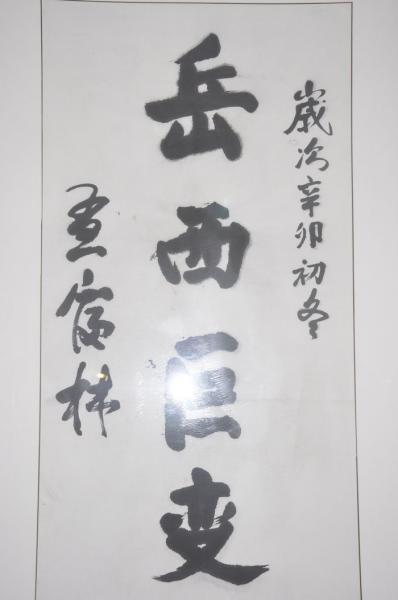 歲次辛卯初冬
岳西巨变
孟富林